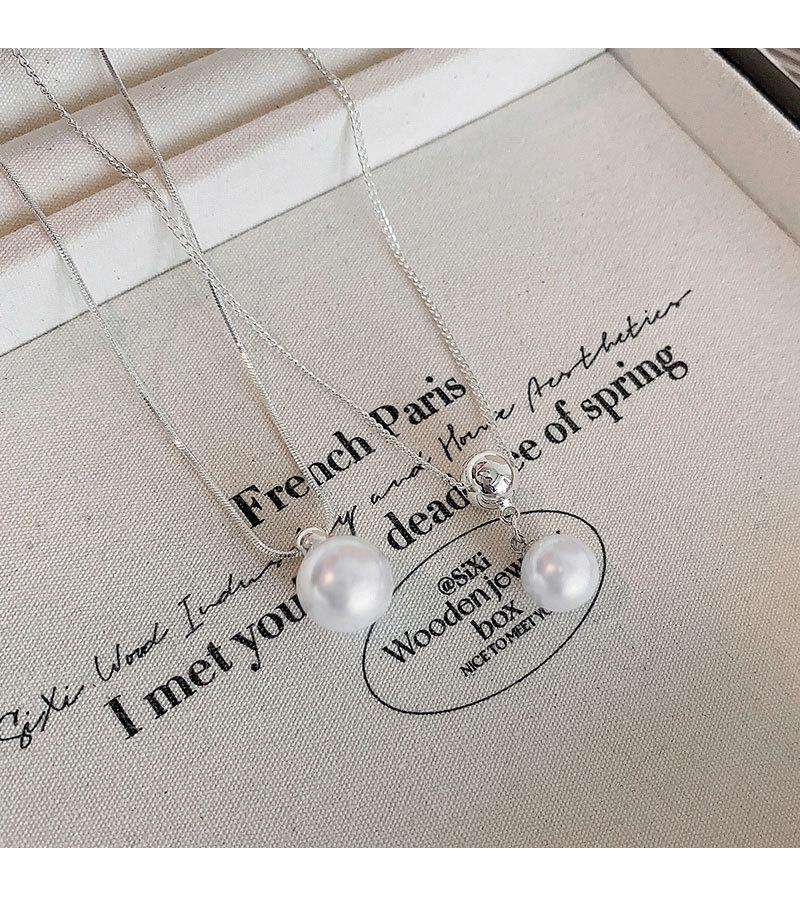 French Paris
SiXi Wood and Home Aesthetics
I met you dead of spring
@SiXi
Wooden
box
NICE TO MEET